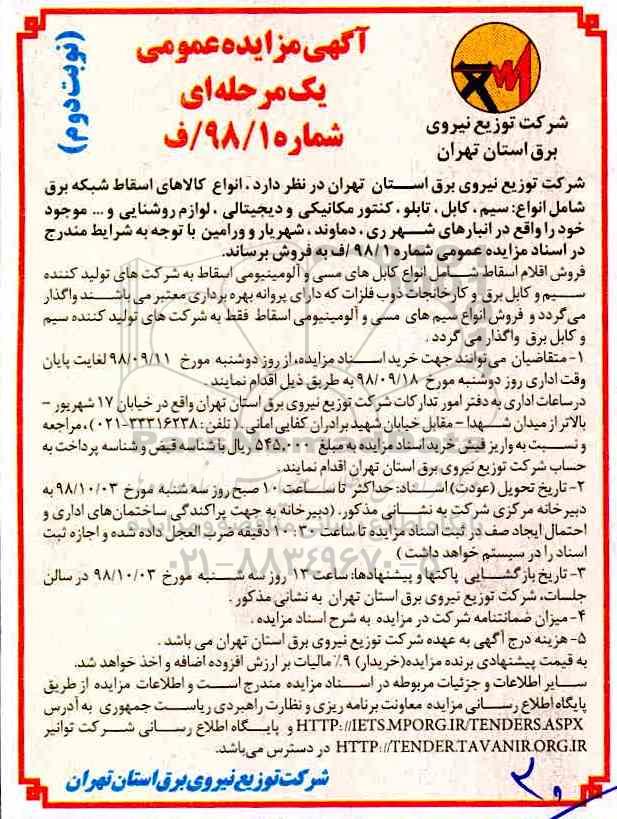 آگهی مزایده عمومی
یک مرحله‌ای
شماره ۹۸/۱/ف
(نوبت دوم)
شرکت توزیع نیروی
برق استان تهران
شرکت توزیع نیروی برق استان تهران در نظر دارد، انواع کالاهای اسقاط شبکه برق
شامل انواع: سیم، کابل، تابلو، کنتور مکانیکی و دیجیتالی، لوازم روشنایی و ... موجود
خود را واقع در انبارهای شهر ری، دماوند، شهریار و ورامین با توجه به شرایط مندرج
در اسناد مزایده عمومی شماره ۹۸/۱/ف به فروش برساند.
فروش اقلام اسقاط شامل انواع کابل های مسی و آلومینیومی اسقاط به شرکت های تولید کننده
سیم و کابل برق و کارخانجات ذوب فلزات که دارای پروانه بهره برداری معتبر می باشند واگذار
می‌گردد و فروش انواع سیم های مسی و آلومینیومی اسقاط فقط به شرکت های تولید کننده سیم
و کابل برق واگذار می گردد.
۱- متقاضیان می‌توانند جهت خرید اسناد مزایده، از روز دوشنبه مورخ ۹۸/۰۹/۱۱ لغایت پایان
وقت اداری روز دوشنبه مورخ ۹۸/۰۹/۱۸ به طریق ذیل اقدام نمایند.
در ساعات اداری به دفتر امور تدارکات شرکت توزیع نیروی برق استان تهران واقع در خیابان ۱۷ شهریور -
بالاتر از میدان شهدا - مقابل خیابان شهید برادران کفایی امانی، (تلفن: ۳۳۳۱۶۲۳۸-۰۲۱)، مراجعه
و نسبت به واریز فیش خرید اسناد مزایده به مبلغ ۵۴۵,۰۰۰ ریال با شناسه قبض و شناسه پرداخت به
حساب شرکت توزیع نیروی برق استان تهران اقدام نمایند.
۲- تاریخ تحویل (عودت) اسناد: حداکثر تا ساعت ۱۰ صبح روز سه شنبه مورخ ۹۸/۱۰/۰۳ به
دبیرخانه مرکزی شرکت به نشانی مذکور. (دبیرخانه به جهت پراکندگی ساختمان‌های اداری و
احتمال ایجاد صف در ثبت اسناد مزایده تا ساعت ۱۰:۳۰ دقیقه ضرب العجل داده شده و اجازه ثبت
اسناد را در سیستم خواهد داشت)
۳- تاریخ بازگشایی پاکتها و پیشنهادها: ساعت ۱۳ روز سه شنبه مورخ ۹۸/۱۰/۰۳ در سالن
جلسات، شرکت توزیع نیروی برق استان تهران به نشانی مذکور.
۴- میزان ضمانتنامه شرکت در مزایده به شرح اسناد مزایده.
۵- هزینه درج آگهی به عهده شرکت توزیع نیروی برق استان تهران می باشد.
به قیمت پیشنهادی برنده مزایده (خریدار) ۹٪ مالیات بر ارزش افزوده اضافه و اخذ خواهد شد.
سایر اطلاعات و جزئیات مربوطه در اسناد مزایده مندرج است و اطلاعات مزایده از طریق
پایگاه اطلاع رسانی مزایده معاونت برنامه ریزی و نظارت راهبردی ریاست جمهوری به آدرس
HTTP://IETS.MPORG.IR/TENDERS.ASPX و پایگاه اطلاع رسانی شرکت توانیر
HTTP://TENDER.TAVANIR.ORG.IR در دسترس می‌باشد.
شرکت توزیع نیروی برق استان تهران
۰۲۱-۸۸۳۴۹۶۷۰-۵